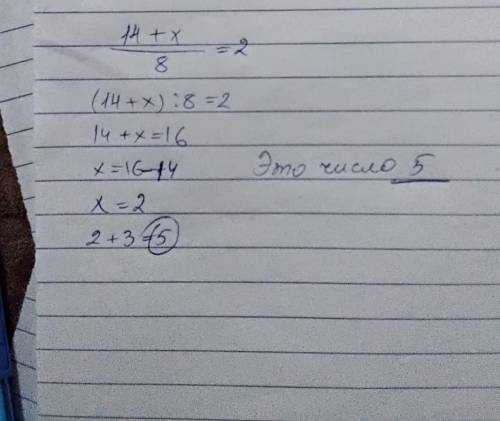 14 + x / 8 = 2
(14 + x) : 8 = 2
14 + x = 16
x = 16 - 14
Это число 5
x = 2
2 + 3 = 5